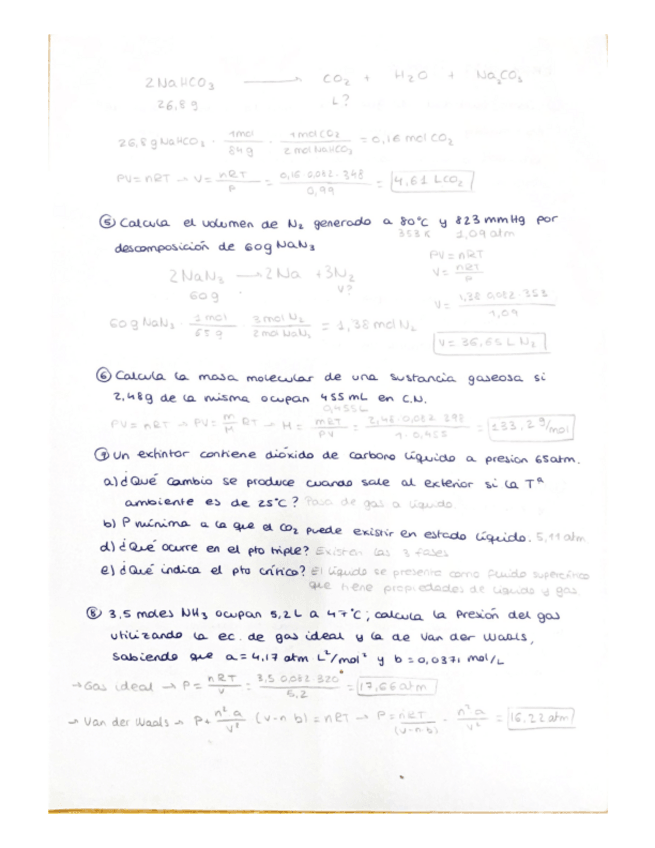 2NaHCO₃ → CO₂ + H₂O + Na₂CO₃
26,8g L?
26,8g NaHCO₃ · 1mol/84g · 1molCO₂/2molNaHCO₃ = 0,16 mol CO₂
PV=nRT → V= nRT/P = 0,16·0,082·348/0,99 = 4,61 L CO₂
⑤ Calcula el volumen de N₂ generado a 80°C y 823 mmHg por
353K 1,09 atm
descomposición de 60g NaN₃
PV=nRT
2NaN₃ → 2Na + 3N₂
V= nRT/P
60g V?
V= 1,38·0,082·353/1,09
60g NaN₃ · 1mol/65g · 3molN₂/2molNaN₃ = 1,38 mol N₂
V= 36,65 L N₂
⑥ Calcula la masa molecular de una sustancia gaseosa si
2,48g de la misma ocupan 455 mL en C.N.
0,455L
PV=nRT → PV= m/M RT → M= mRT/PV = 2,48·0,082·298/1·0,455 = 133,2 g/mol
⑦ Un extintor contiene dióxido de carbono líquido a presión 65atm.
a) ¿Qué cambio se produce cuando sale al exterior si la Tª
ambiente es de 25°C? Pasa de gas a líquido.
b) P mínima a la que el CO₂ puede existir en estado líquido. 5,11 atm
d) ¿Qué ocurre en el pto triple? Existen las 3 fases
e) ¿Qué indica el pto crítico? El líquido se presenta como fluido supercrítico
que tiene propiedades de líquido y gas.
⑧ 3,5 moles NH₃ ocupan 5,2L a 47°C; calcula la Presión del gas
utilizando la ec. de gas ideal y la de Van der Waals,
sabiendo que a=4,17 atm L²/mol² y b=0,0371 mol/L
→ Gas ideal → P= nRT/V = 3,5·0,082·320/5,2 = 17,66 atm
→ Van der Waals → P+ n²a/V² (V-n·b) = nRT → P= nRT/(V-n·b) - n²a/V² = 16,22 atm